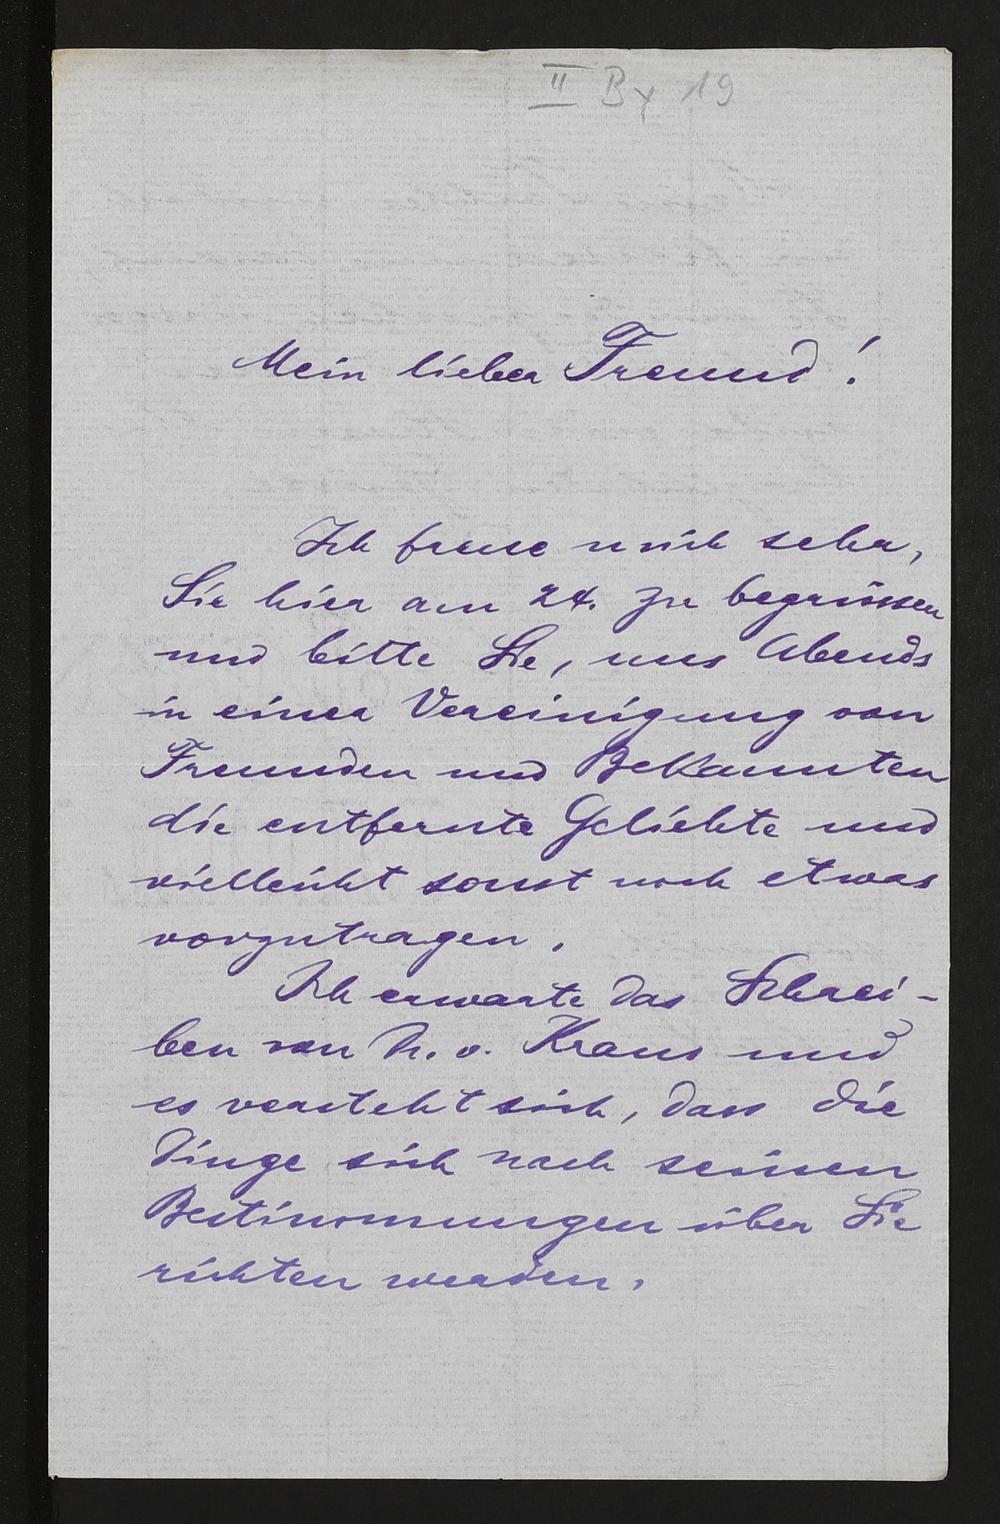 II By 19
Mein lieber Freund!
Ich freue mich sehr,
Sie hier am 24. zu begrüssen
und bitte Sie, uns Abends
in einer Vereinigung von
Freunden und Bekannten
die entfernte Geliebte und
vielleicht sonst noch etwas
vorzutragen.
Ich erwarte das Schrei-
ben von H. v. Kraus und
es versteht sich, dass die
Dinge sich nach seinen
Bestimmungen über Sie
richten werden.